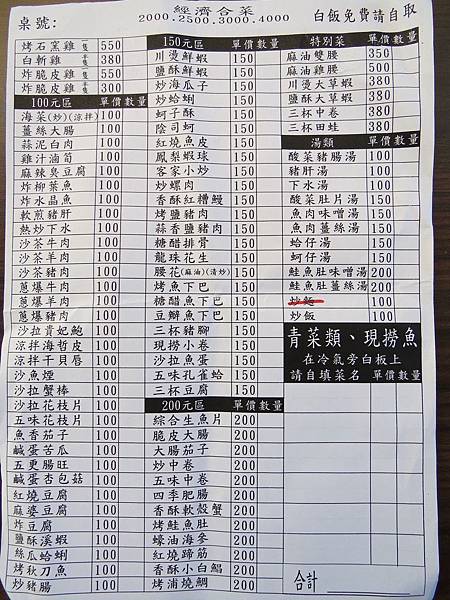 經濟合菜
桌號:
2000.2500.3000.4000
白飯免費請自取
烤石黑雞 一隻 550
白斬雞 半隻 380
炸脆皮雞 一隻 550
炸脆皮雞 半隻 380
100元區 單價 數量
海菜(炒)(涼拌) 100
薑絲大腸 100
蒜泥白肉 100
雞汁滷筍 100
麻辣臭豆腐 100
炸柳葉魚 100
炸水晶魚 100
軟煎豬肝 100
熱炒下水 100
沙茶牛肉 100
沙茶羊肉 100
沙茶豬肉 100
蔥爆牛肉 100
蔥爆羊肉 100
蔥爆豬肉 100
沙拉貴妃鮑 100
涼拌海哲皮 100
涼拌干貝唇 100
沙魚煙 100
沙拉蟹棒 100
沙拉花枝片 100
五味花枝片 100
魚香茄子 100
鹹蛋苦瓜 100
五更腸旺 100
鹹蛋杏包菇 100
紅燒豆腐 100
麻婆豆腐 100
炸豆腐 100
鹽酥溪蝦 100
絲瓜蛤蜊 100
烤秋刀魚 100
炒豬腸 100
150元區 單價 數量
川燙鮮蝦 150
鹽酥鮮蝦 150
炒海瓜子 150
炒蛤蜊 150
蚵子酥 150
陰司蚵 150
紅燒魚皮 150
鳳梨蝦球 150
客家小炒 150
炒螺肉 150
香酥紅糟鰻 150
烤鹽豬肉 150
蒜香鹽豬肉 150
糖醋排骨 150
龍珠花生 150
腰花(麻油)(清炒) 150
烤魚下巴 150
糖醋魚下巴 150
豆瓣魚下巴 150
三杯豬腳 150
現撈小卷 150
沙拉魚蛋 150
五味孔雀蛤 150
三杯豆腐 150
200元區 單價 數量
綜合生魚片 200
脆皮大腸 200
大腸茄子 200
炒中卷 200
五味中卷 200
四季肥腸 200
香酥軟殼蟹 200
烤鮭魚肚 200
蠔油海參 200
紅燒蹄筋 200
香酥小白鯧 200
烤浦燒鯛 200
特別菜 單價 數量
麻油雙腰 350
麻油雞腰 500
川燙大草蝦 350
鹽酥大草蝦 350
三杯中卷 380
三杯田蛙 380
湯類 單價 數量
酸菜豬腸湯 100
豬肝湯 100
下水湯 100
酸菜肚片湯 100
魚肉味噌湯 100
魚肉薑絲湯 100
蛤仔湯 100
蚵仔湯 100
鮭魚肚味噌湯 200
鮭魚肚薑絲湯 200
炒麵 100
炒飯 100
青菜類、現撈魚
在冷氣旁白板上
請自填菜名 單價 數量
合計